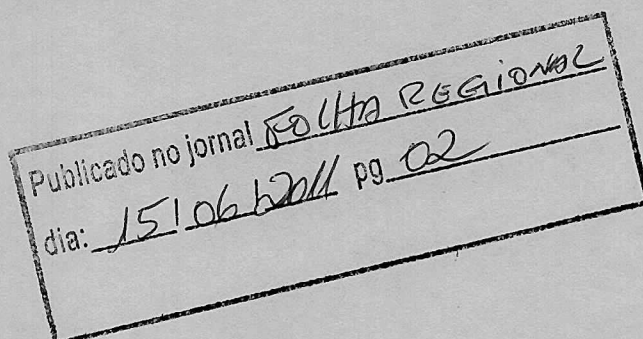 Publicado no jornal FOLHA REGIONAL
dia: 15/06/2011 pg 02